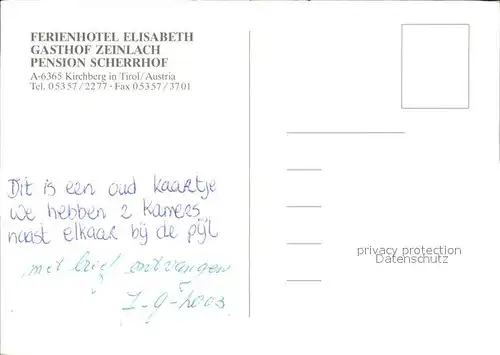 FERIENHOTEL ELISABETH
GASTHOF ZEINLACH
PENSION SCHERRHOF
A-6365 Kirchberg in Tirol/Austria
Tel. 05357/2277 · Fax 05357/3701
Dit is een oud kaartje
we hebben 2 kamers
naast elkaar bij de pijl
met brief ontvangen
7-9-2003
privacy protection
Datenschutz